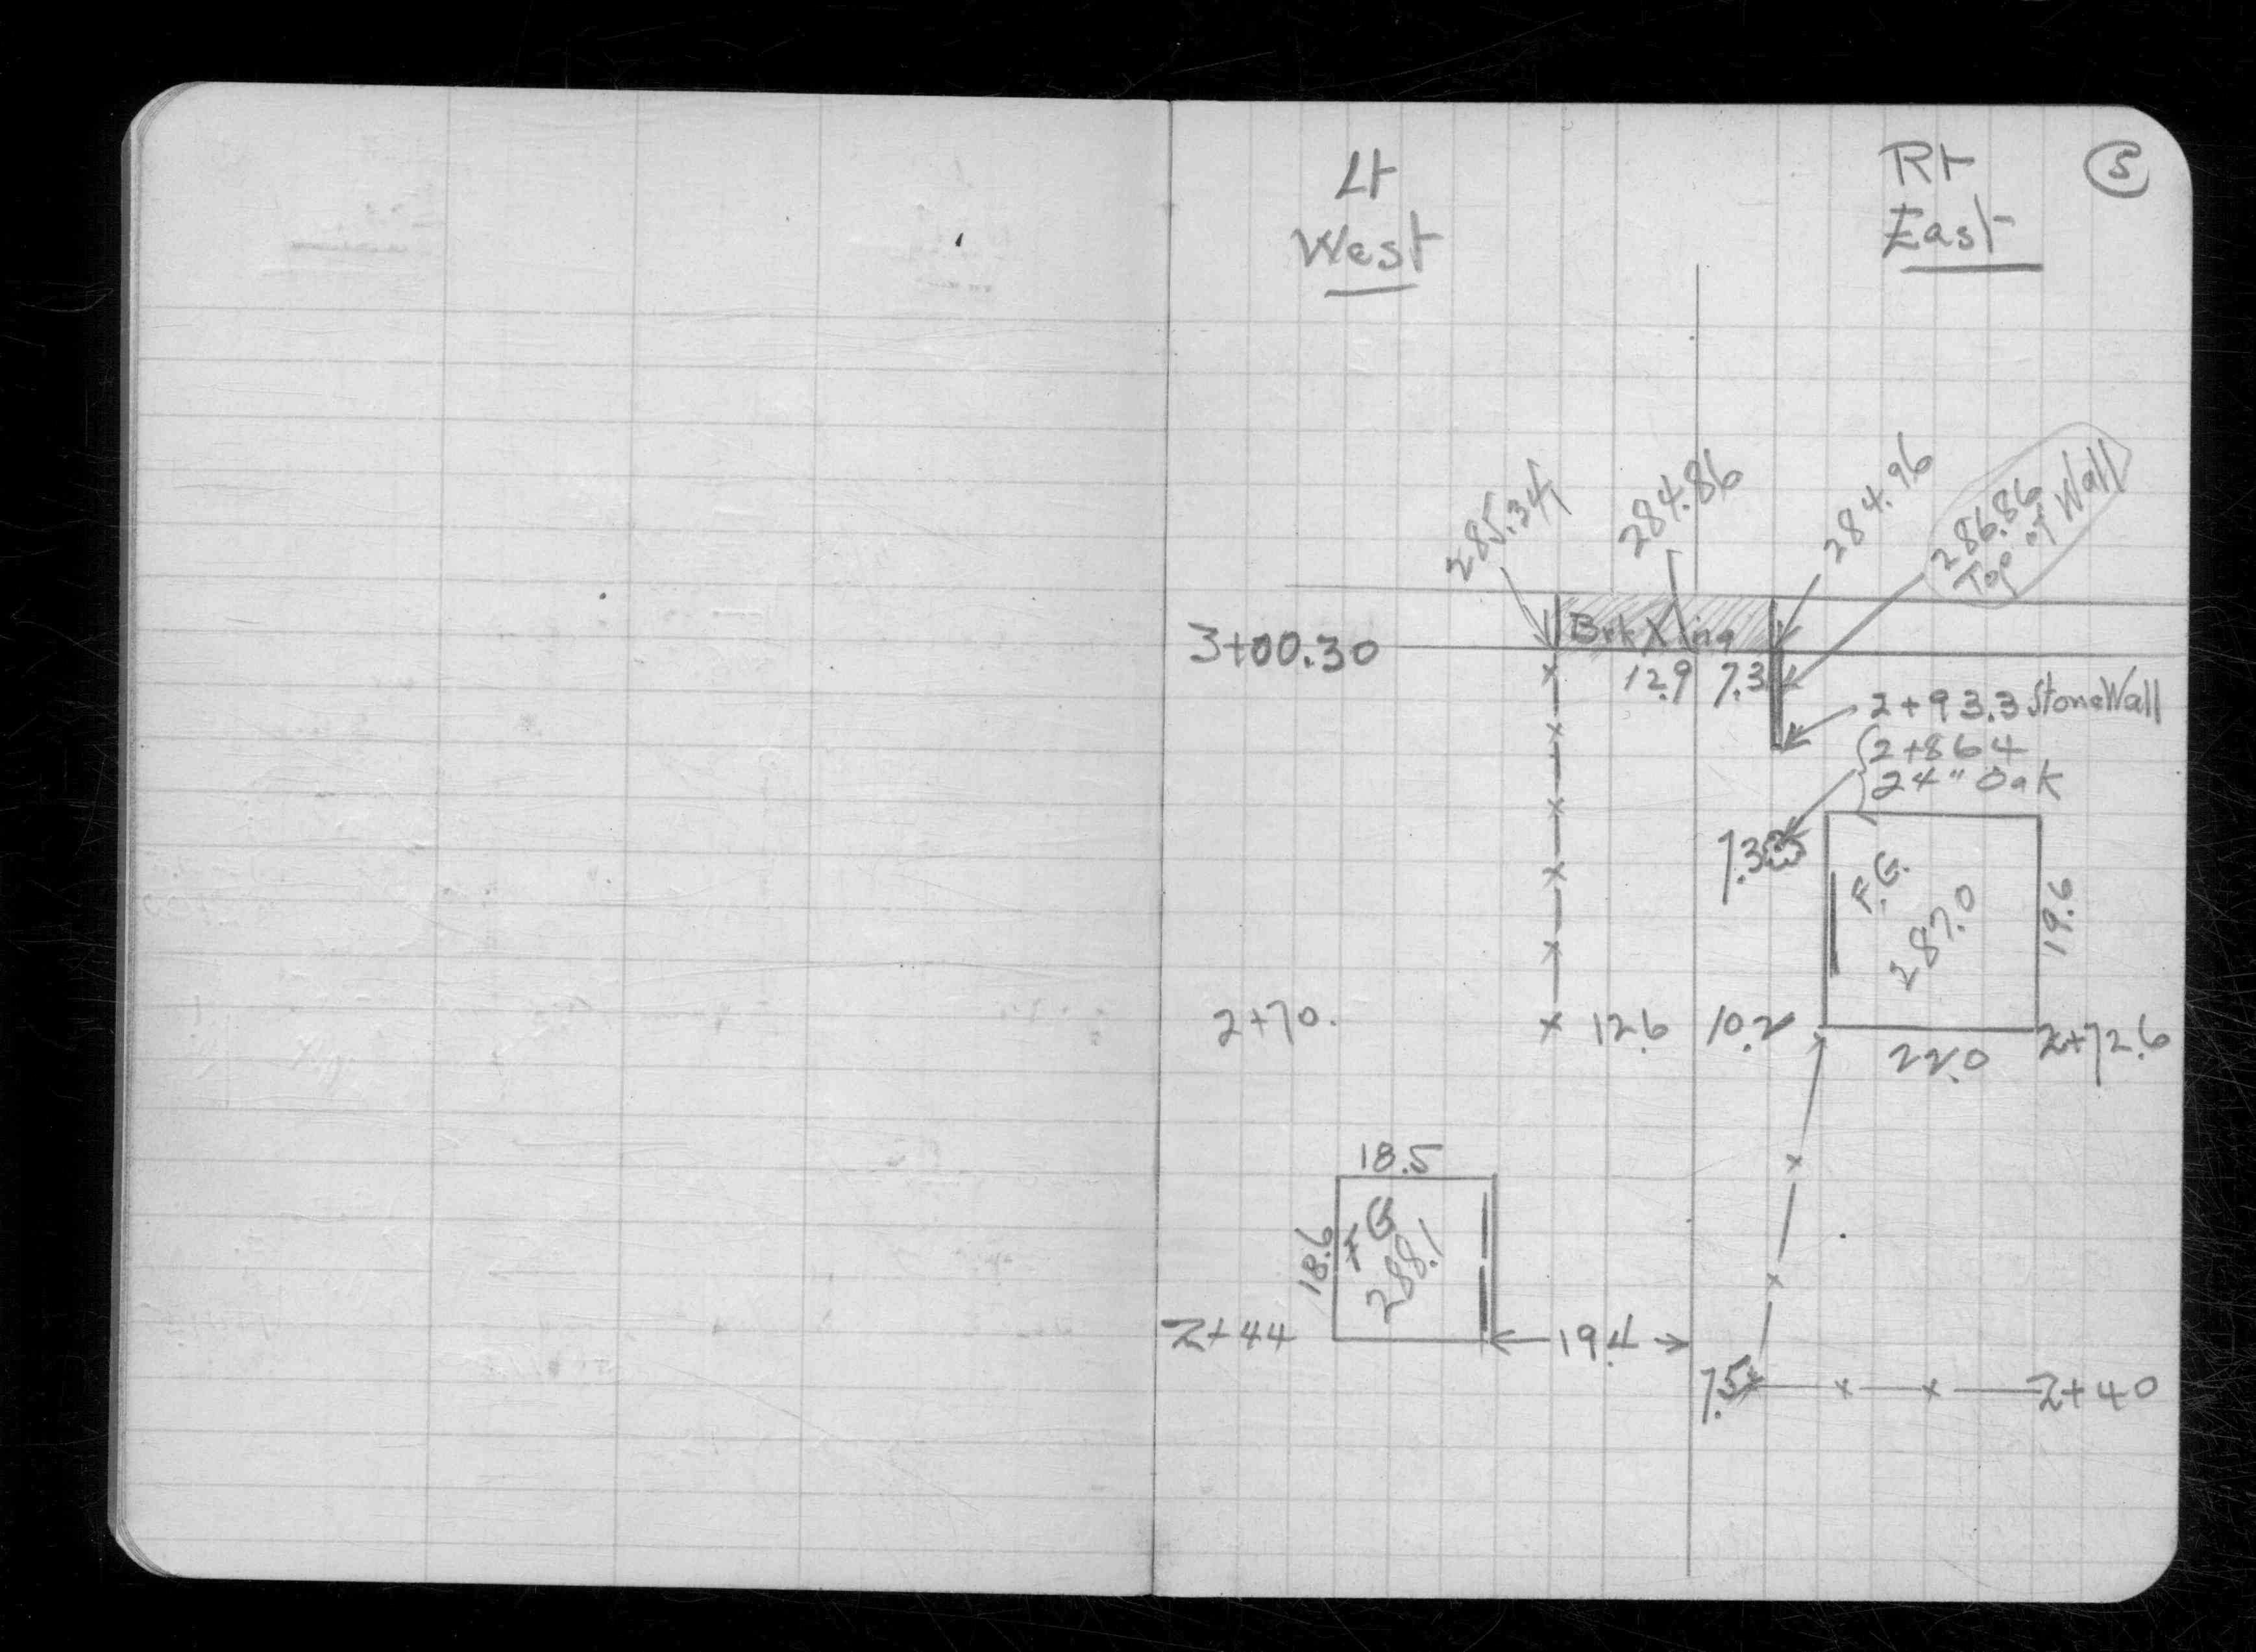 Lt
West
Rt
East
5
285.34
284.86
284.96
286.86
Top of Wall
3+00.30
Brk Xing
12.9 7.3
2+93.3 Stone Wall
2+864
24" Oak
7.3
F.G.
287.0
19.6
2+70.
12.6 10.2
22.0
2+72.6
18.5
18.6
F G
288.1
2+44
19.4
7.5
2+40